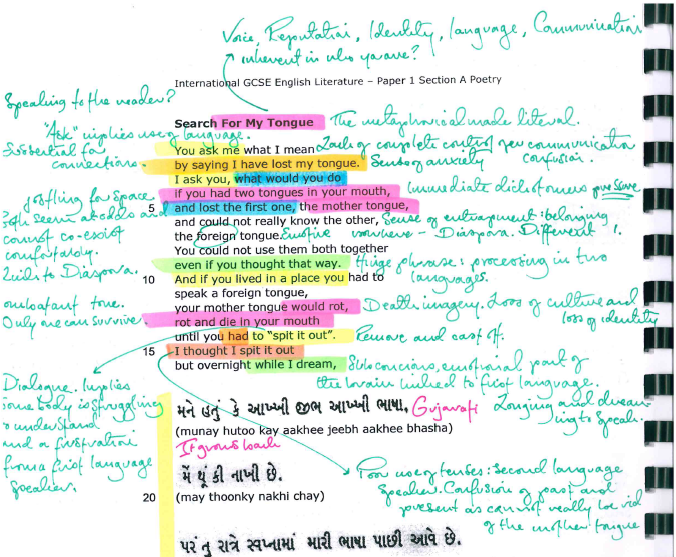 Voice, Reputation, Identity, language, Communication
inherent in who you are?
International GCSE English Literature – Paper 1 Section A Poetry
Speaking to the reader?
Search For My Tongue The metaphorical made literal.
"Ask" implies use of language.
Essential for
connections.
You ask me what I mean Lack of complete control over communication
by saying I have lost my tongue. Sense of anxiety confusion.
I ask you, what would you do
if you had two tongues in your mouth, immediate
5 and lost the first one, the mother tongue,
and could not really know the other, Sense of entrapment: belonging
the foreign tongue. Emotive nowhere – Diaspora. Different
Jostling for space.
Both seem at odds and
cannot co-exist
comfortably.
Links to Diaspora.
You could not use them both together
even if you thought that way. Hinge phrase: processing in two
languages.
10 And if you lived in a place you had to
speak a foreign tongue,
your mother tongue would rot, Death imagery. Loss of culture and
loss of identity
rot and die in your mouth
until you had to "spit it out". Remove and cast off.
combatant tone.
Only one can survive.
15 I thought I spit it out
but overnight while I dream, Subconscious, emotional part of
the brain linked to first language.
Dialogue. Implies
somebody is struggling
to understand
and a frustration
from a first language
speaker.
મને હતું કે આખ્ખી જીભ આખ્ખી ભાષા, Gujarati Longing and dreaming to speak.
(munay hutoo kay aakhee jeebh aakhee bhasha)
It grows back
મેં થૂંકી નાખી છે.
20 (may thoonky nakhi chay)
Poor use of tenses: second language
speaker. Confusion of past and
present as cannot really be rid
of the mother tongue
પરંતુ રાત્રે સ્વપ્નામાં મારી ભાષા પાછી આવે છે.